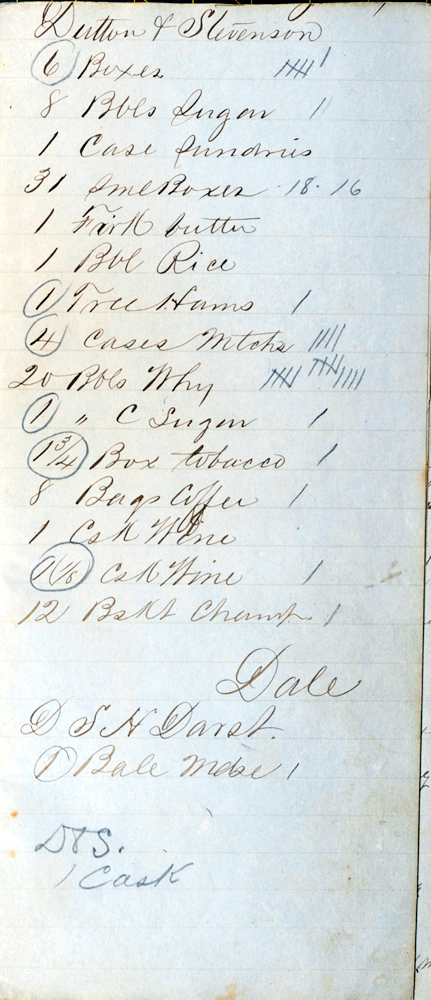 Dutton & Stevenson
6 Boxes
8 Bbls Sugar
1 Case Sundries
31 Sml Boxes 18 . 16
1 Firk butter
1 Bbl Rice
1 Tree Hams
4 Cases Mtchs
20 Bbls Why
1 " C Sugar
1 3/4 Box tobacco
8 Bags Coffee
1 Csk Wine
1 1/8 Csk Wine
12 Bskt Champ
Dale
D S N Darst.
1 Bale Mdse
D & S.
1 Cask